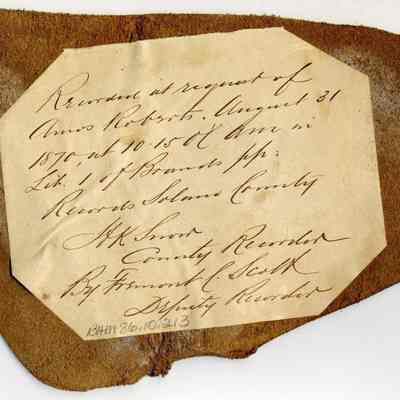 Recorded at request of
Amos Roberts. August 31
1870, at 10-15 am in
Lib. 1 of Brands pp.
Records Solano County
H K Snow
County Recorder
By Fremont C Scott
Deputy Recorder
BHM 86.10.213